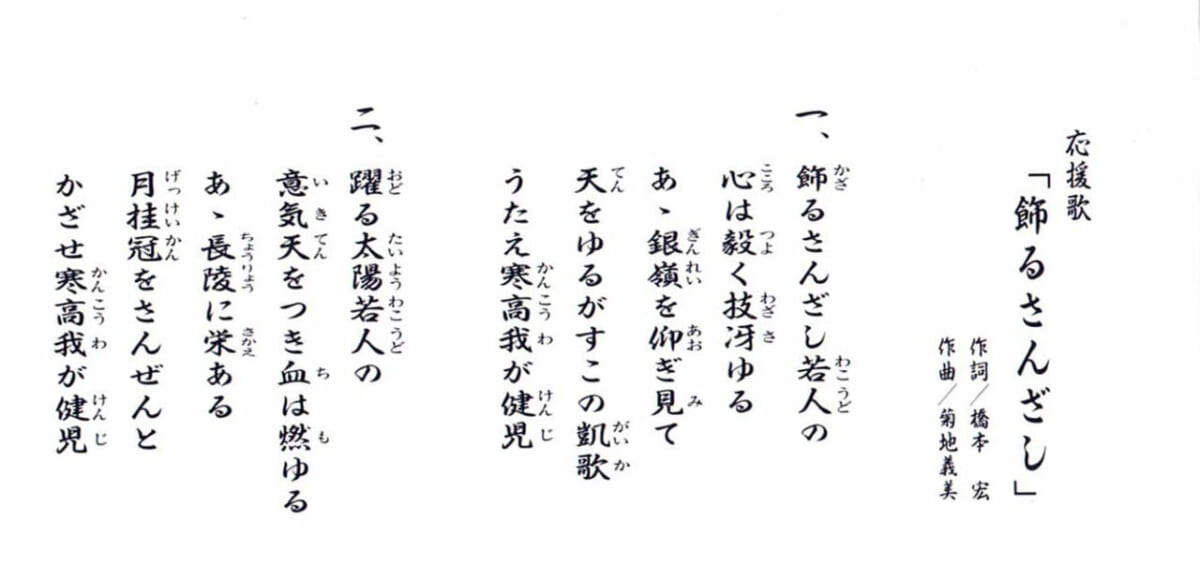 応援歌
「飾るさんざし」
作詞／橋本 宏
作曲／菊地義美
一、飾るさんざし若人の
心は毅く技冴ゆる
あゝ銀嶺を仰ぎ見て
天をゆるがすこの凱歌
うたえ寒高我が健児
二、躍る太陽若人の
意気天をつき血は燃ゆる
あゝ長陵に栄ある
月桂冠をさんぜんと
かざせ寒高我が健児